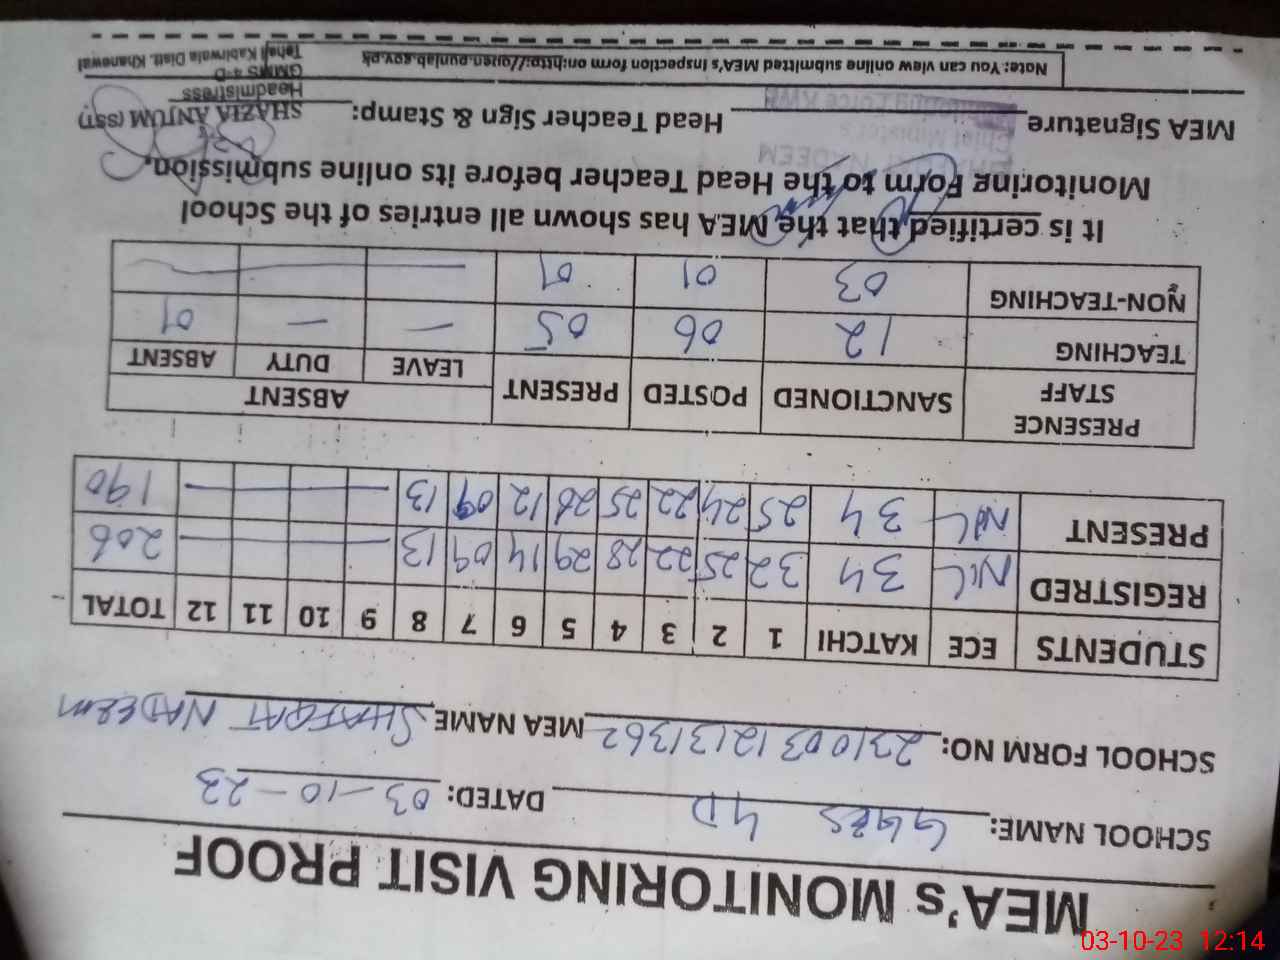 MEA's MONITORING VISIT PROOF
SCHOOL NAME: GGES 4D DATED: 03-10-23
SCHOOL FORM NO: 23100312131362 MEA NAME SHAFQAT NADEEM
STUDENTS ECE KATCHI 1 2 3 4 5 6 7 8 9 10 11 12 TOTAL
REGISTRED NIL 34 32 25 22 28 29 14 09 13 — 206
PRESENT NIL 34 25 24 22 25 26 12 09 13 — 190
PRESENCE STAFF SANCTIONED POSTED PRESENT ABSENT
LEAVE DUTY ABSENT
TEACHING 12 06 05 — — 01
NON-TEACHING 03 01 01 —
It is certified that the MEA has shown all entries of the School
Monitoring Form to the Head Teacher before its online submission.
MEA Signature Head Teacher Sign & Stamp:
NADEEM
Chief Minister's
SHAZIA ANJUM (SST)
Headmistress
GMMS 4-D
Tehsil Kabirwala Distt. Khanewal
Note: You can view online submitted MEA's inspection form on:http://open.punjab.gov.pk
03-10-23 12:14